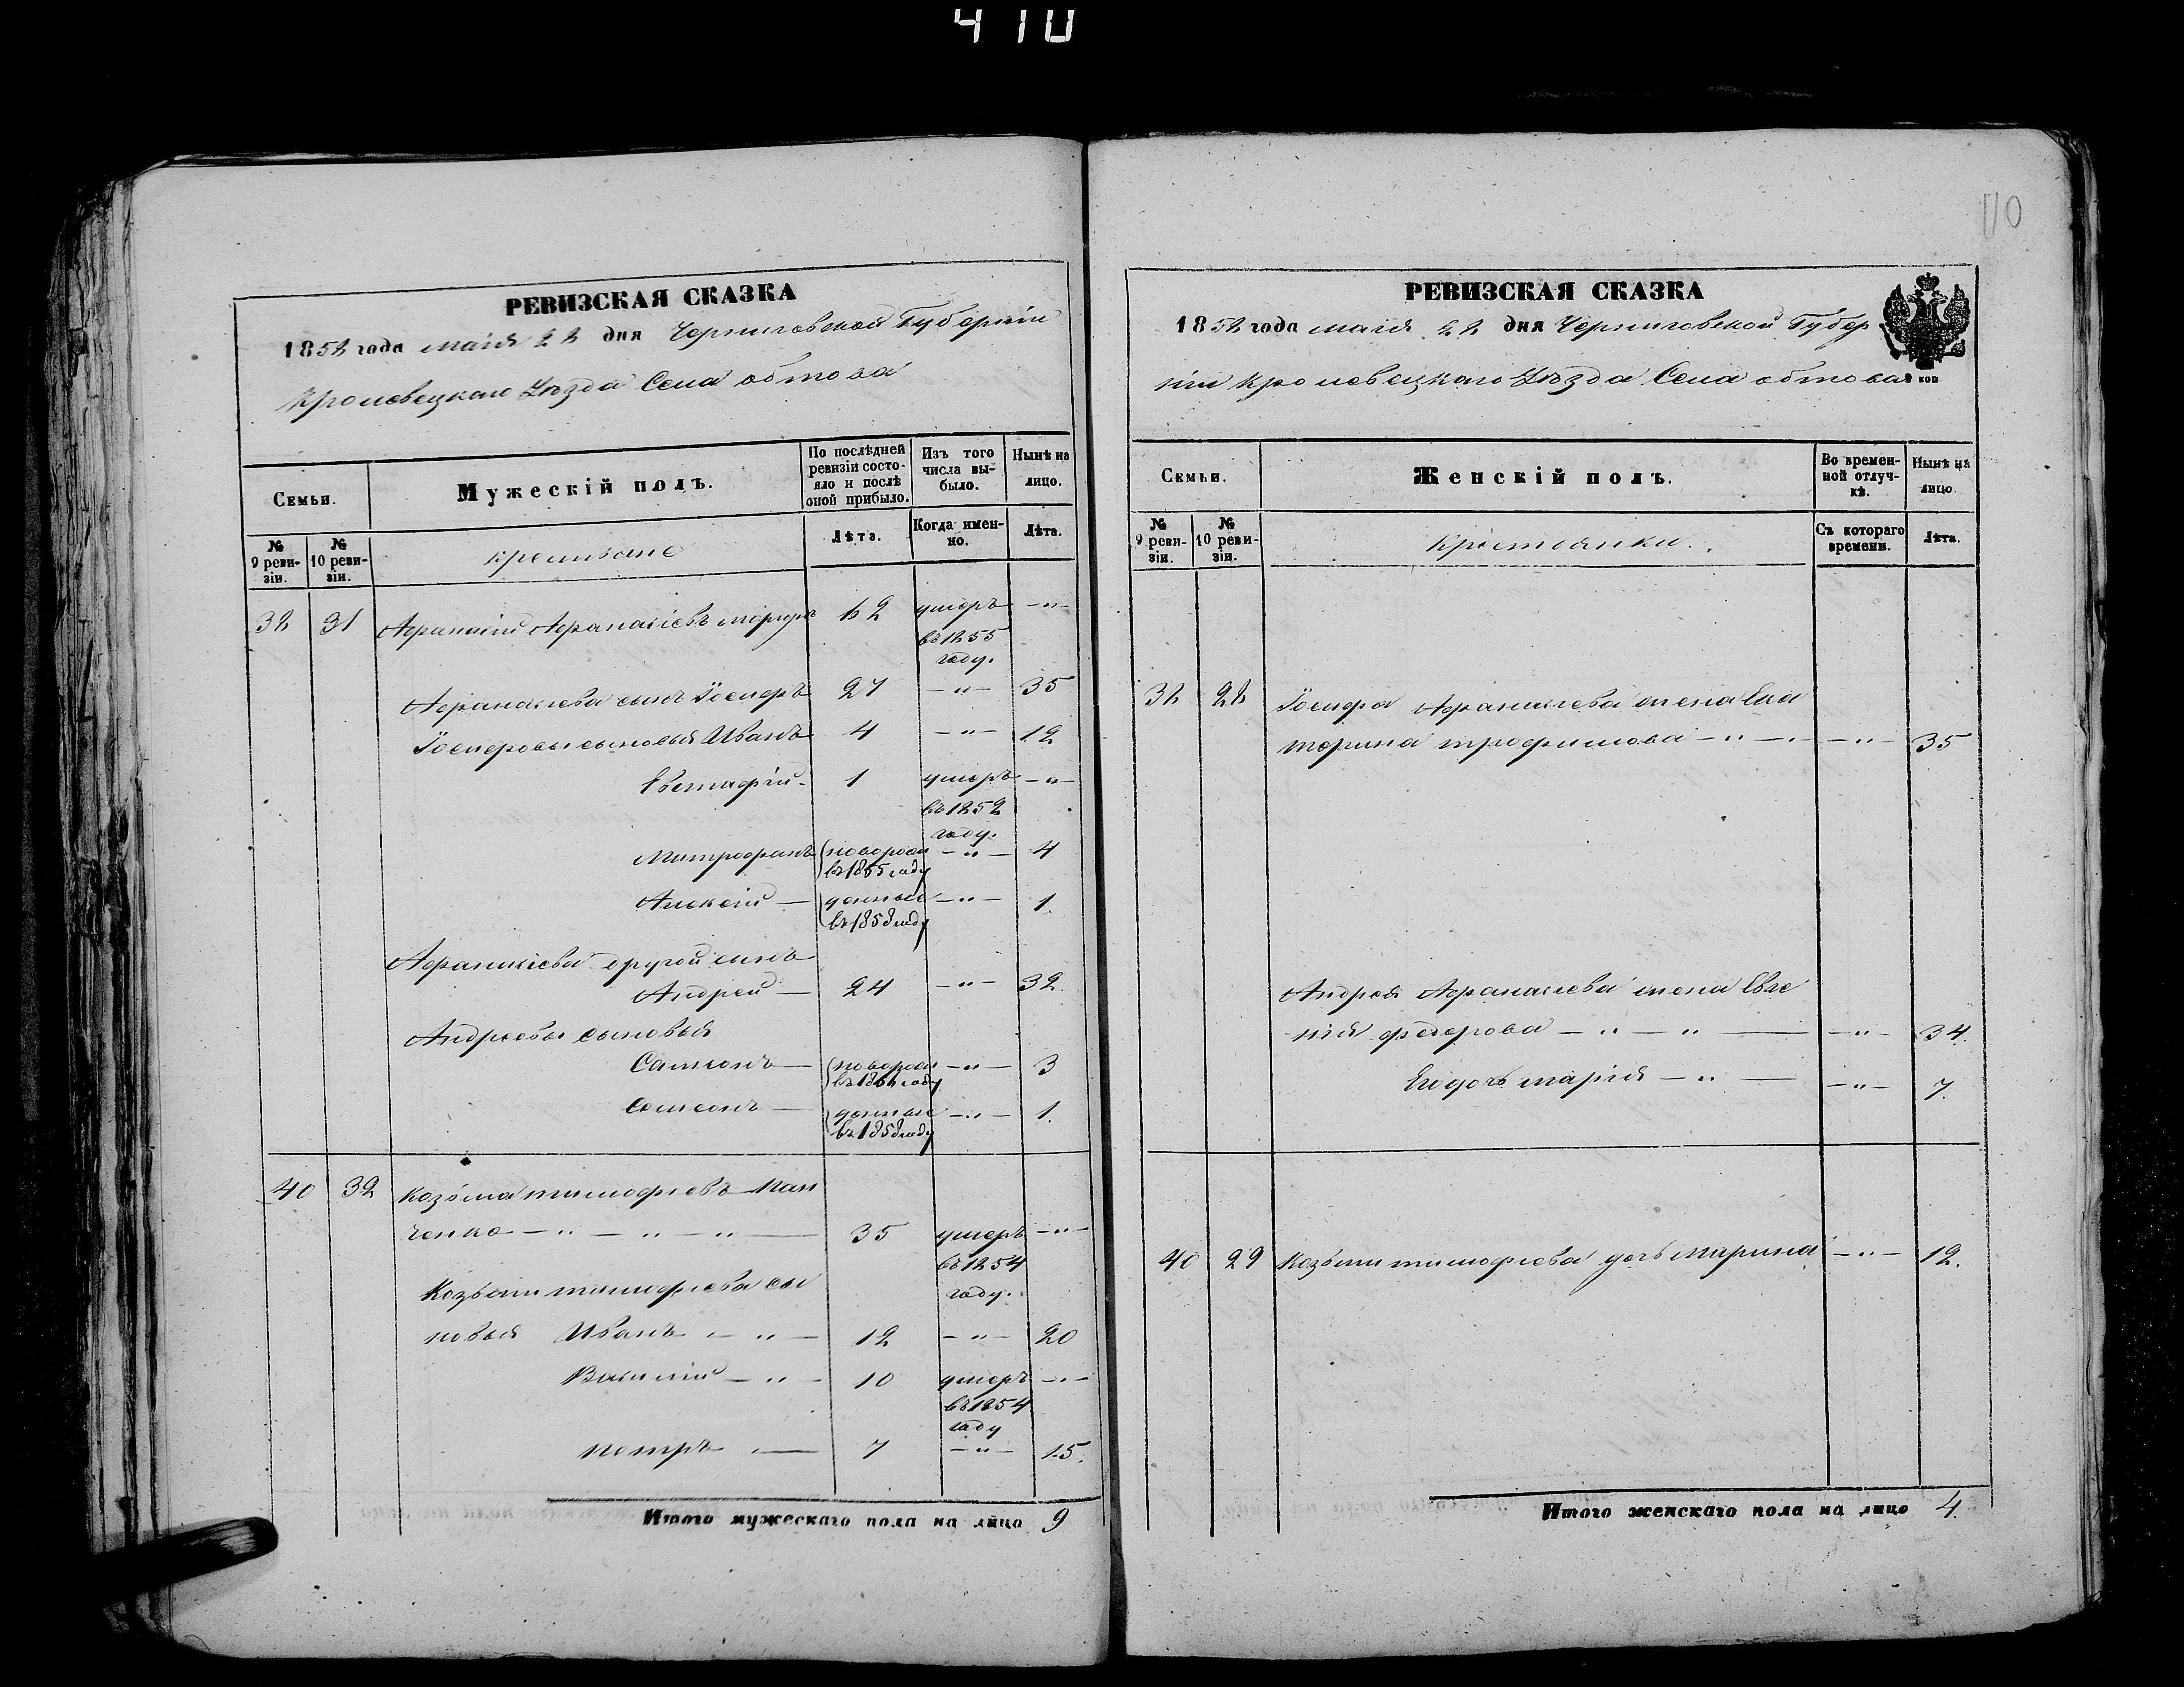 410
110
РЕВИЗСКАЯ СКАЗКА
1858 года маія 22 дня Черниговской Губерніи
Кролевецкаго Уѣзда Села обтова
Семьи.
Мужескій полъ.
По послѣдней ревизіи состояло и послѣ оной прибыло.
Изъ того числа выбыло.
Нынѣ на лицо.
№ 9 ревизіи.
№ 10 ревизіи.
крестьяне
Лѣта.
Когда именно.
Лѣта.
38 31 Афанасій Афанасіевъ 62 умеръ —"—
въ 1855
году.
Афанасіева сынъ Іосифъ 27 —"— 35
Іосифовы сыновья Иванъ 4 —"— 12
Евстафій - 1 умеръ —"—
въ 1852
году.
Митрофанъ новорож —"— 4
въ 1855 году
Алексій — денные —"— 1.
въ 1858 году
Афанасіева другой сынъ
Андрей — 24 —"— 32.
Андреевы сыновья
Самсонъ — новорож —"— 3
денные —"— 1.
въ 1858 году
40 32 Козьма тимофіевъ Пан
ченко —"—"—"— 35 умеръ —"—
въ 1854
году.
Козьмы тимофіева сы
новья Иванъ —"— 12 —"— 20
Василій —"— 10 умеръ —"—
въ 1854
году
петръ — 7 —"— 15.
Итого мужескаго пола на лицо 9
РЕВИЗСКАЯ СКАЗКА
1858 года маія 22 дня Черниговской Губер
ніи Кролевецкаго Уѣзда Села обтова
коп
Семьи.
Женскій полъ.
Во временной отлучкѣ.
Нынѣ на лицо.
№ 9 ревизіи.
№ 10 ревизіи.
Крестьянки.
Съ котораго времени.
Лѣта.
38 28 Іосифа Афанасіева жена Ека
терина трофимова —"— —"— 35
Андрея Афанасіева жена Евге
нія федорова —"—"— —"— 34.
Его дочь марія —"— —"— 7.
40 29 Козьмы тимофіева дочь марина —"— 12.
Итого женскаго пола на лицо 4.